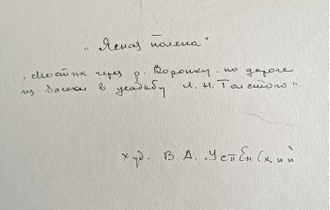 „Ясная поляна"
„Мостик через р. Воронку по дороге
из Засеки в усадьбу Л. Н. Толстого".
худ. В. А. Успенский